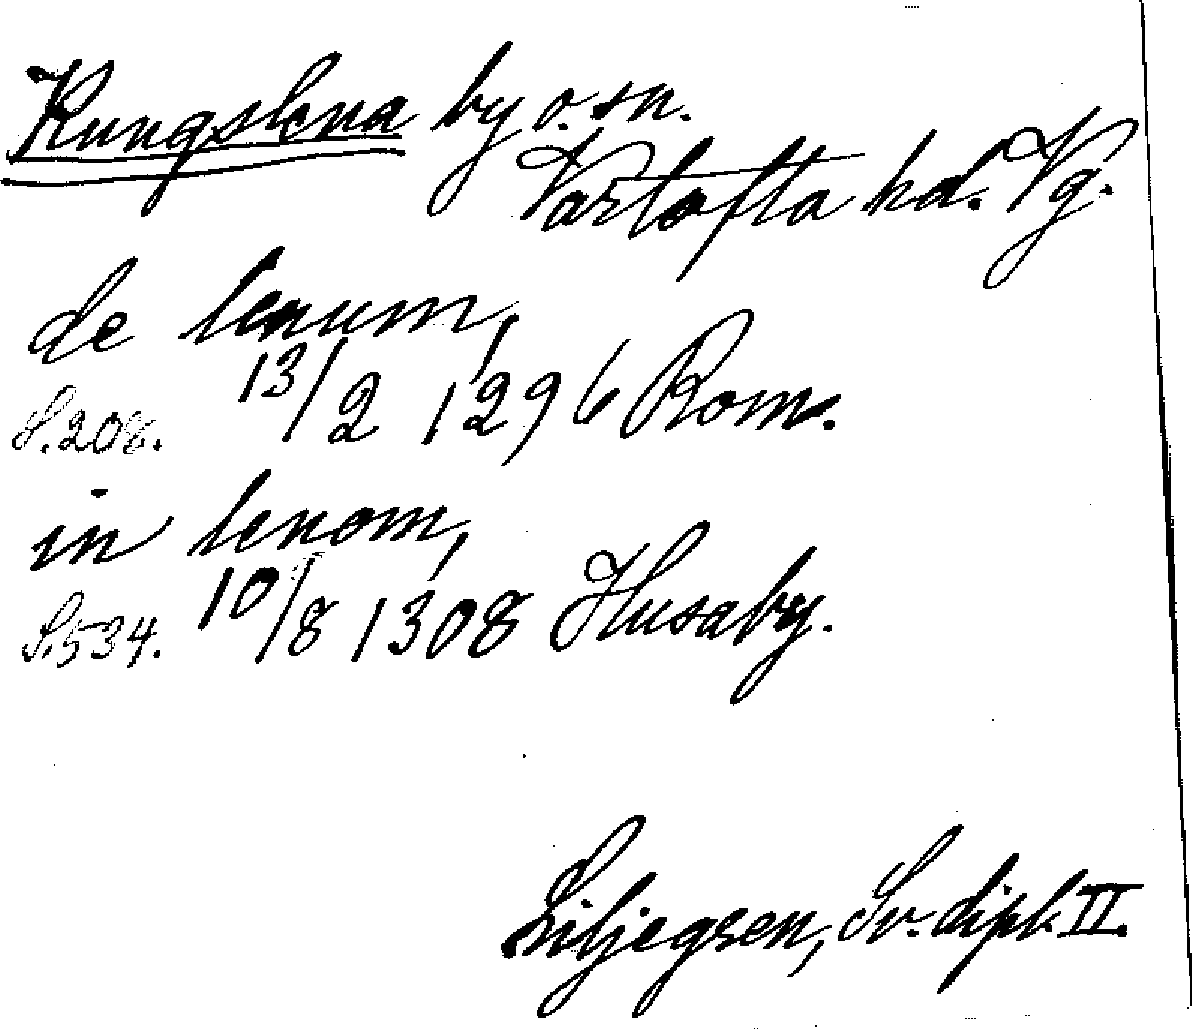 Kungslena by o. sn.
Vartofta hd. Vg.
de lenum,
S. 208. 13/2 1296 Rom.
in lenom,
S. 534. 10/8 1308 Husaby.
Liljegren, Sv. dipl. II.